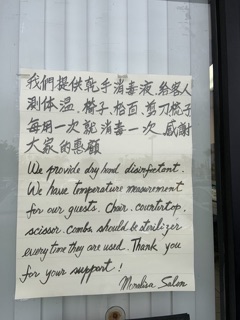 我們提供乾手消毒液.給客人
測体溫.椅子.枱面.剪刀梳子
每用一次就消毒一次.感謝
大家的惠顧
We provide dry hand disinfectant.
We have temperature measurement
for our guests. Chair. countertop.
scissor. combs should be sterilizer
every time they are used. Thank you
for your support!
Monalisa Salon